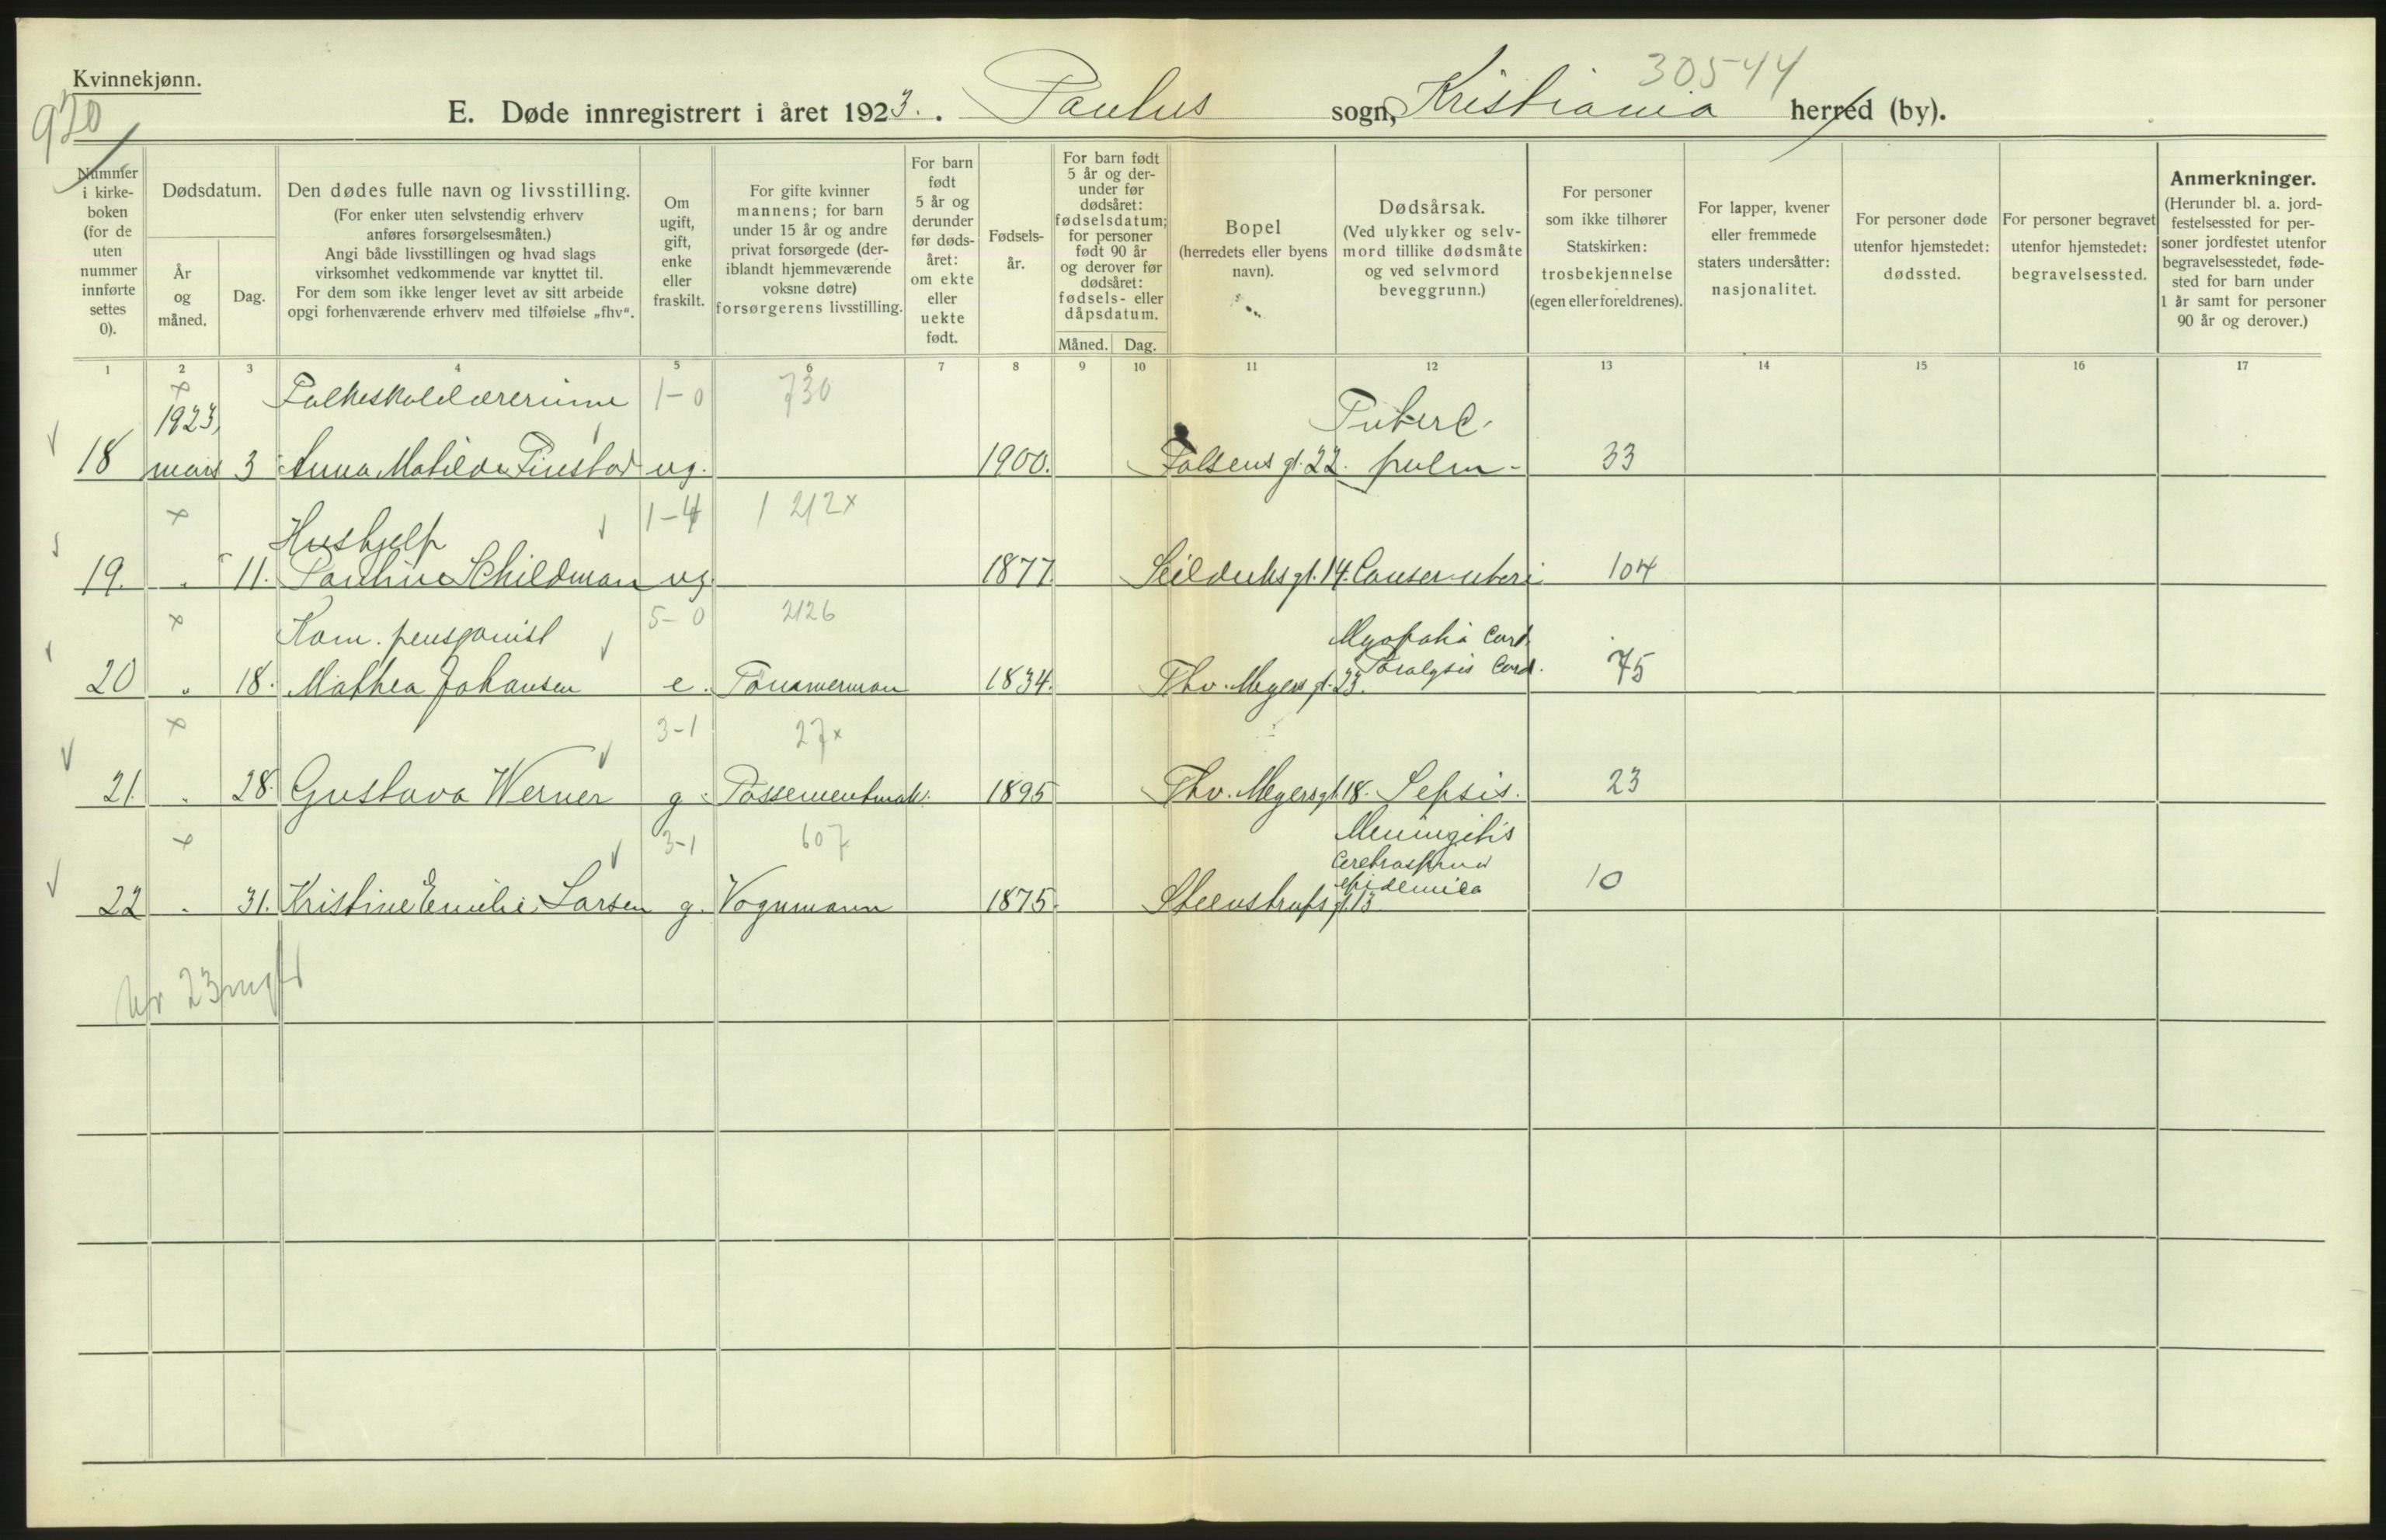 Kvinnekjønn.
920
30544
E. Døde innregistrert i året 1923. Paulus sogn, Kristiania herred (by).
Nummer i kirke-boken (for de uten nummer innførte settes 0).
Dødsdatum.
År og måned.
Dag.
Den dødes fulle navn og livsstilling.
(For enker uten selvstendig erhverv
anføres forsørgelsesmåten.)
Angi både livsstillingen og hvad slags
virksomhet vedkommende var knyttet til.
For dem som ikke lenger levet av sitt arbeide
opgi forhenværende erhverv med tilføielse „fhv“.
Om ugift, gift, enke eller fraskilt.
For gifte kvinner
mannens; for barn
under 15 år og andre
privat forsørgede (der-
iblandt hjemmeværende
voksne døtre)
forsørgerens livsstilling.
For barn
født
5 år og
derunder
før døds-
året:
om ekte
eller
uekte
født.
Fødsels-
år.
For barn født
5 år og der-
under før
dødsåret:
fødselsdatum;
for personer
født 90 år
og derover før
dødsåret:
fødsels- eller
dåpsdatum.
Måned. Dag.
Bopel
(herredets eller byens
navn).
Dødsårsak.
(Ved ulykker og selv-
mord tillike dødsmåte
og ved selvmord
beveggrunn.)
For personer
som ikke tilhører
Statskirken:
trosbekjennelse
(egen eller foreldrenes).
For lapper, kvener
eller fremmede
staters undersåtter:
nasjonalitet.
For personer døde
utenfor hjemstedet:
dødssted.
For personer begravet
utenfor hjemstedet:
begravelsessted.
Anmerkninger.
(Herunder bl. a. jord-
festelsessted for per-
soner jordfestet utenfor
begravelsesstedet, føde-
sted for barn under
1 år samt for personer
90 år og derover.)
1 2 3 4 5 6 7 8 9 10 11 12 13 14 15 16 17
× Folkeskolelærerinne 1-0 730
1923, Tuberc.
18 mars 3 Anna Matilde Finstad ug. 1900. Falsens gt. 22. pulm. 33
× 1-4 1 212×
Hushjelp
19. " 11. Pauline Schildman ug. 1877. Seilduksgt. 14. Cancer uteri 104
× Kom. pensjonist 5-0 2126 Myopatia Cord.
Paralysis Cord.
20 " 18. Mathea Johansen e. Tømmerman 1834. Thv. Meyers gt. 23. 75
× 3-1 27×
21. " 28. Gustava Werner g. Possementmak. 1895 Thv. Meyersgt. 18. Sepsis. 23
× 3-1 607 Meningitis
Cerebrospinal
epidemica
22 " 31. Kristine Emilie Larsen g. Vognmann 1875. Steenstrups gt. 13 10
Nr 23 mgfl